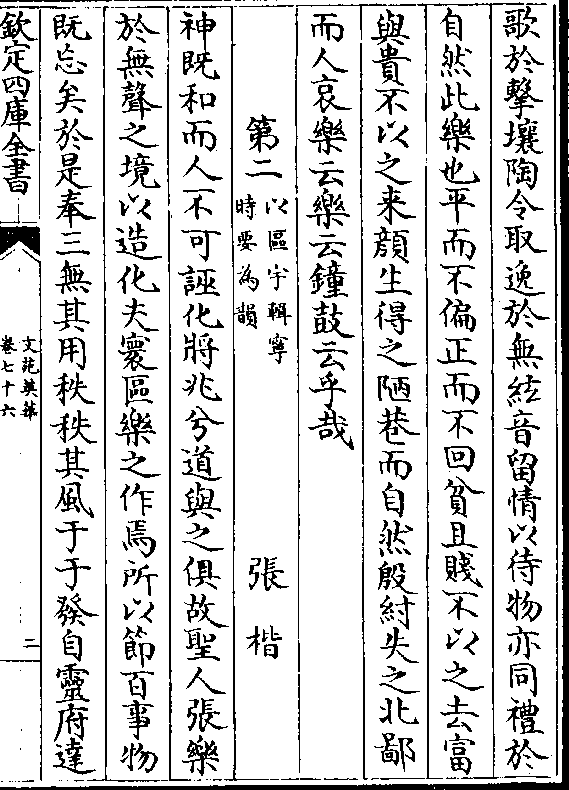 歌於擊壤陶令取逸於無絃音留情以待物亦同禮於
自然此樂也平而不偏正而不回貧且賤不以之去富
與貴不以之来顔生得之陋巷而自然殷紂失之北鄙
而人哀樂云樂云鐘鼓云乎哉
第二
以區宇輯寧
時要為韻
張楷
神既和而人不可誣化將兆兮道與之俱故聖人張樂
於無聲之境以造化夫寰區樂之作焉所以節百事物
既忘矣於是奉三無其用秩秩其風于于發自靈府達
欽定四庫全書
文苑英華
卷七十六
二